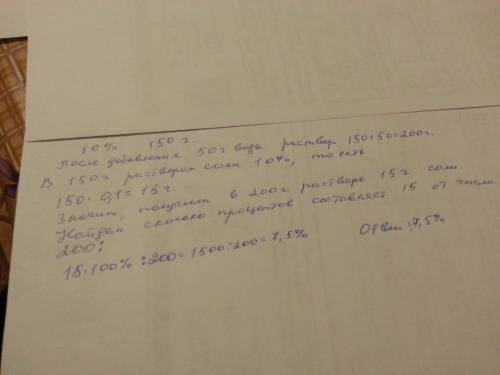 10% 150 г.
После добавления 50 г воды раствор 150+50=200г.
В 150г раствора соли 10%, то есть
150 · 0,1 = 15 г.
Значит, получили в 200г растворе 15 г соли.
Найдем сколько процентов составляет 15 от числа
200:
15·100% : 200 = 1500 : 200 = 7,5% Ответ: 7,5%